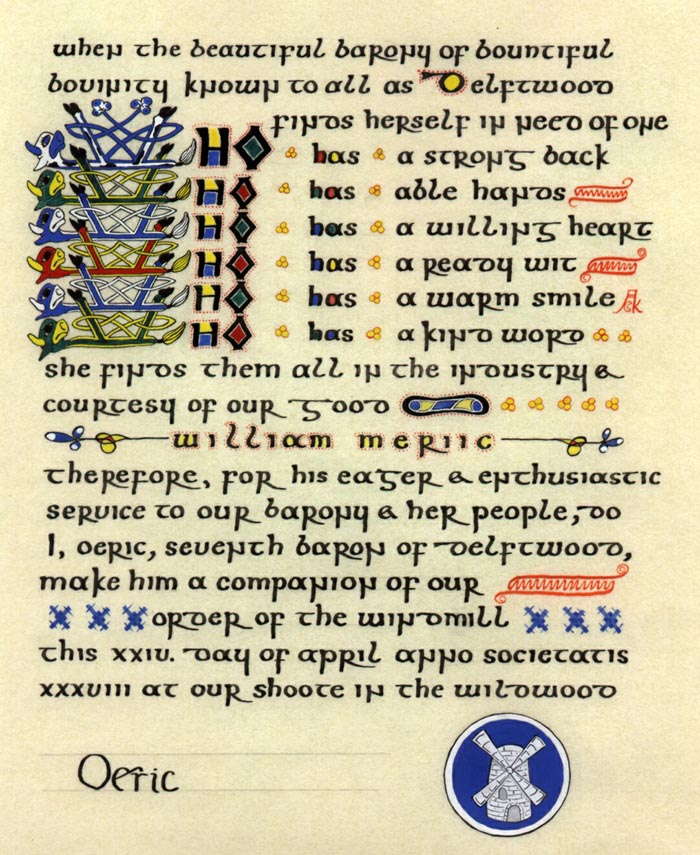 when the beautiful barony of bountiful
bovinity known to all as Delftwood
finds herself in need of one
WHO has a strong back
WHO has able hands
WHO has a willing heart
WHO has a ready wit
WHO has a warm smile
WHO has a kind word
she finds them all in the industry &
courtesy of our good
william meriic
therefore, for his eager & enthusiastic
service to our barony & her people, do
I, oeric, seventh baron of delftwood,
make him a companion of our
order of the windmill
this xxiv. day of april anno societatis
xxxviii at our shoote in the wildwood
Oeric